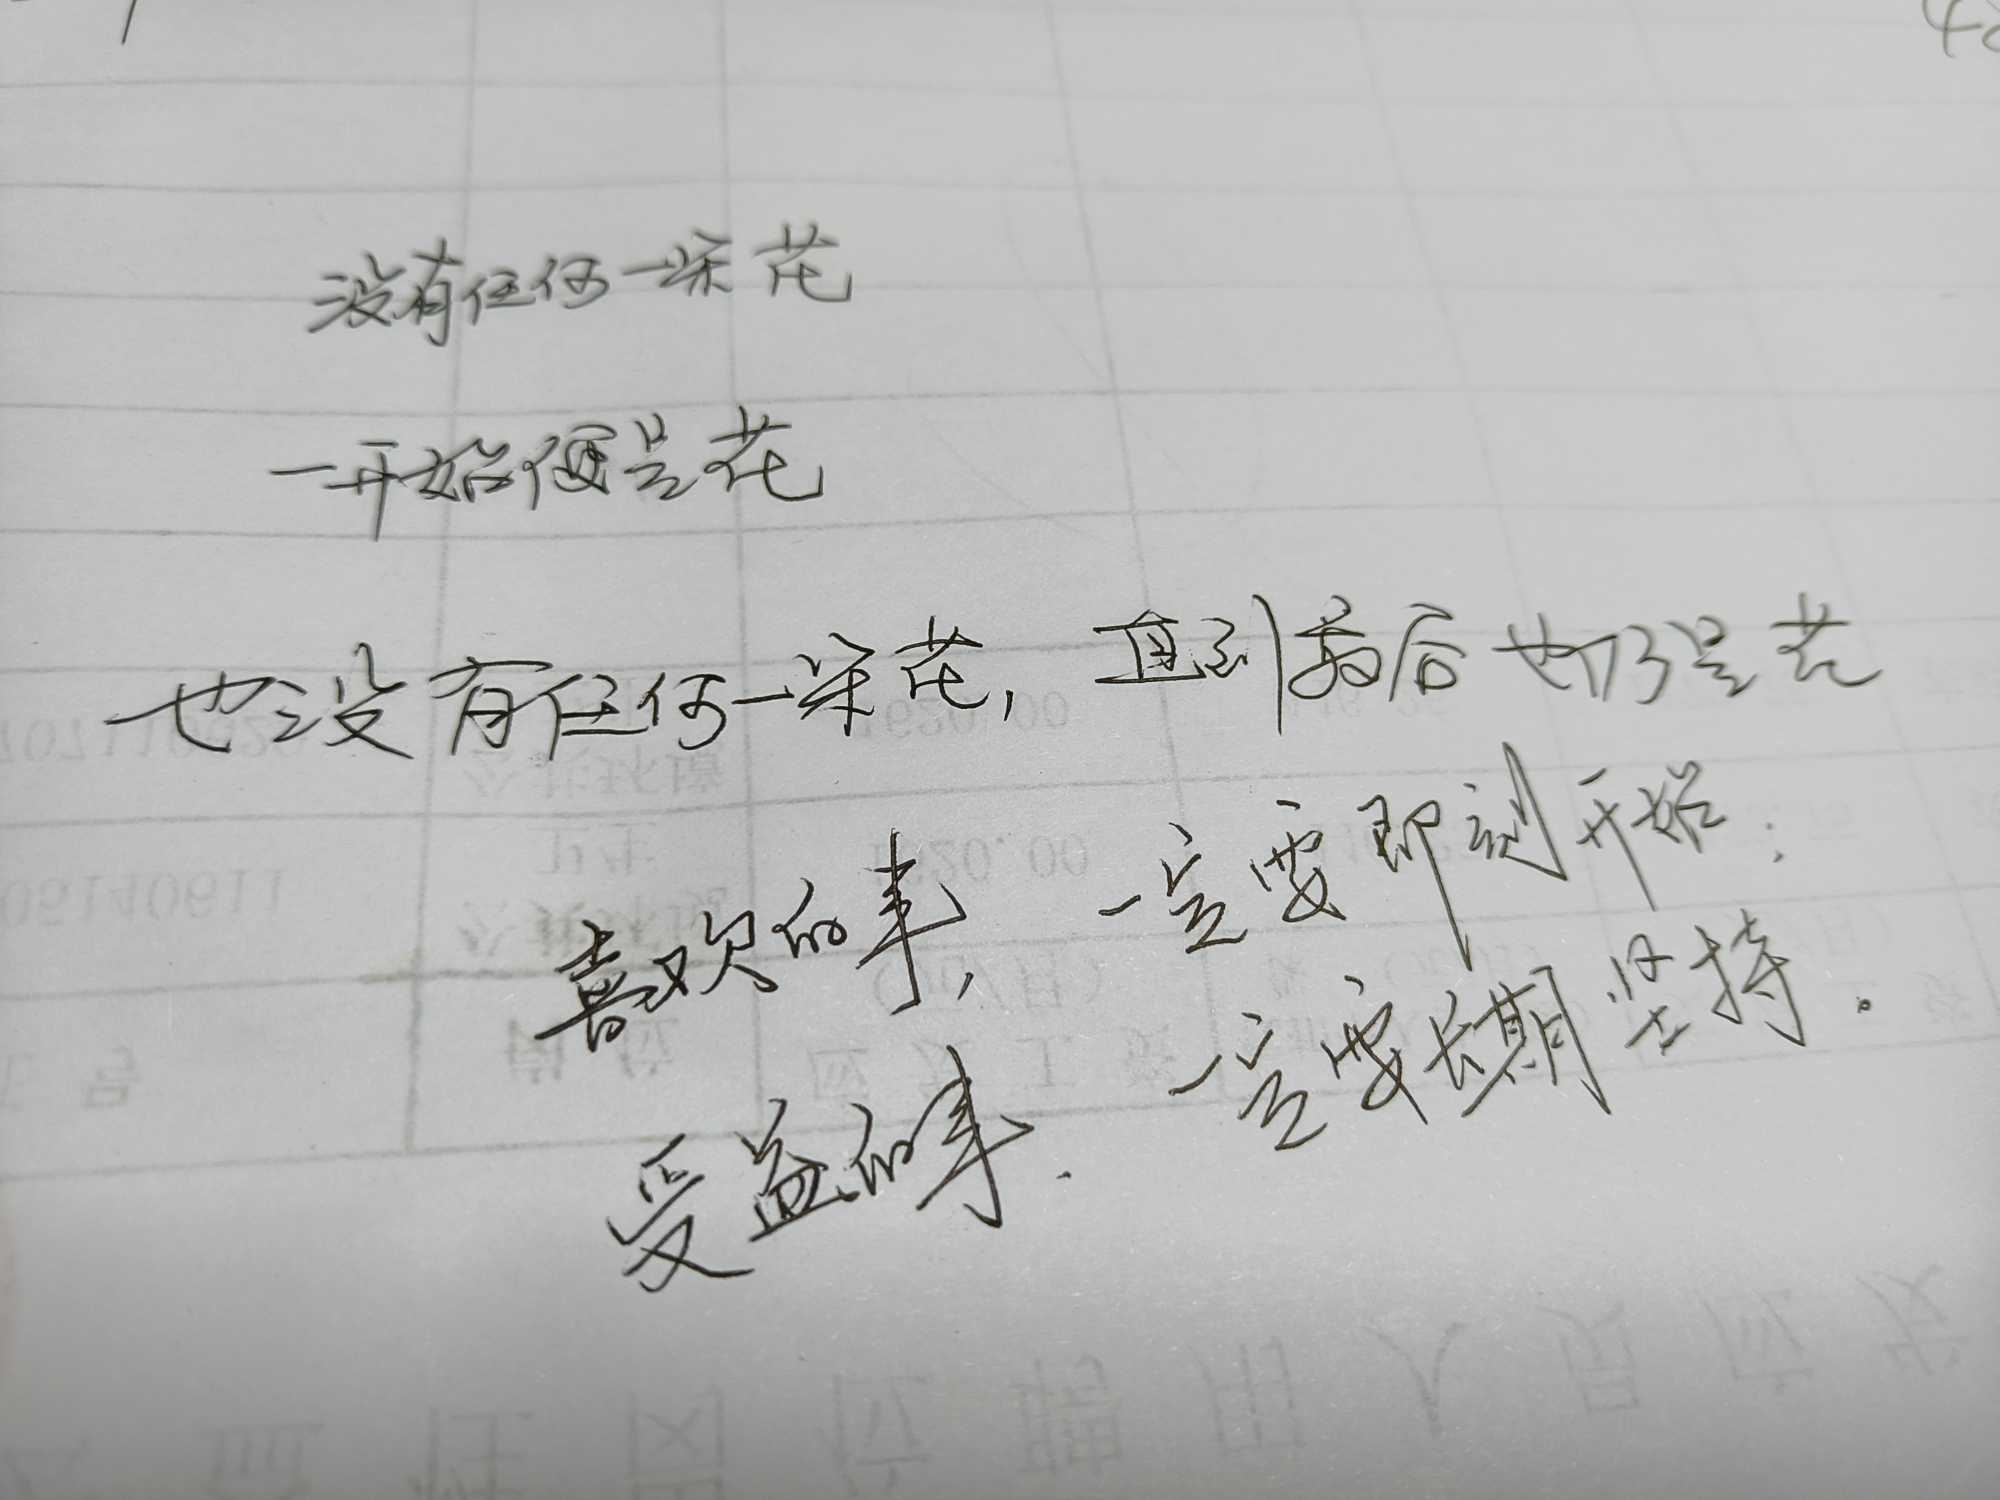 没有任何一朵花
一开始便是花
也没有任何一朵花，直到最后也仍是花
喜欢的事，一定要即刻开始；
受益的事，一定要长期坚持。